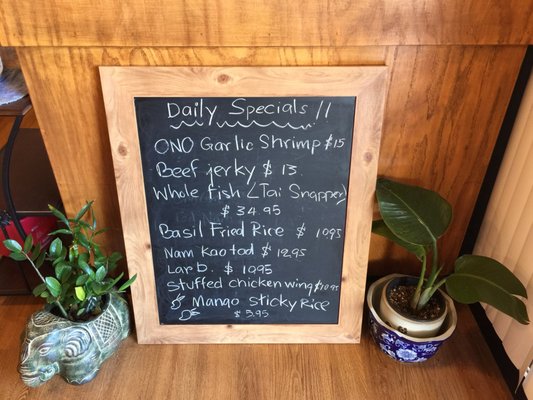 Daily Specials //
ONO Garlic Shrimp $15
Beef jerky $13
Whole fish (Tai Snapper)
$34.95
Basil Fried Rice $1095
Nam Kao tod $12.95
Larb. $1095
Stuffed chicken wing $10.95
Mango sticky Rice
$5.95